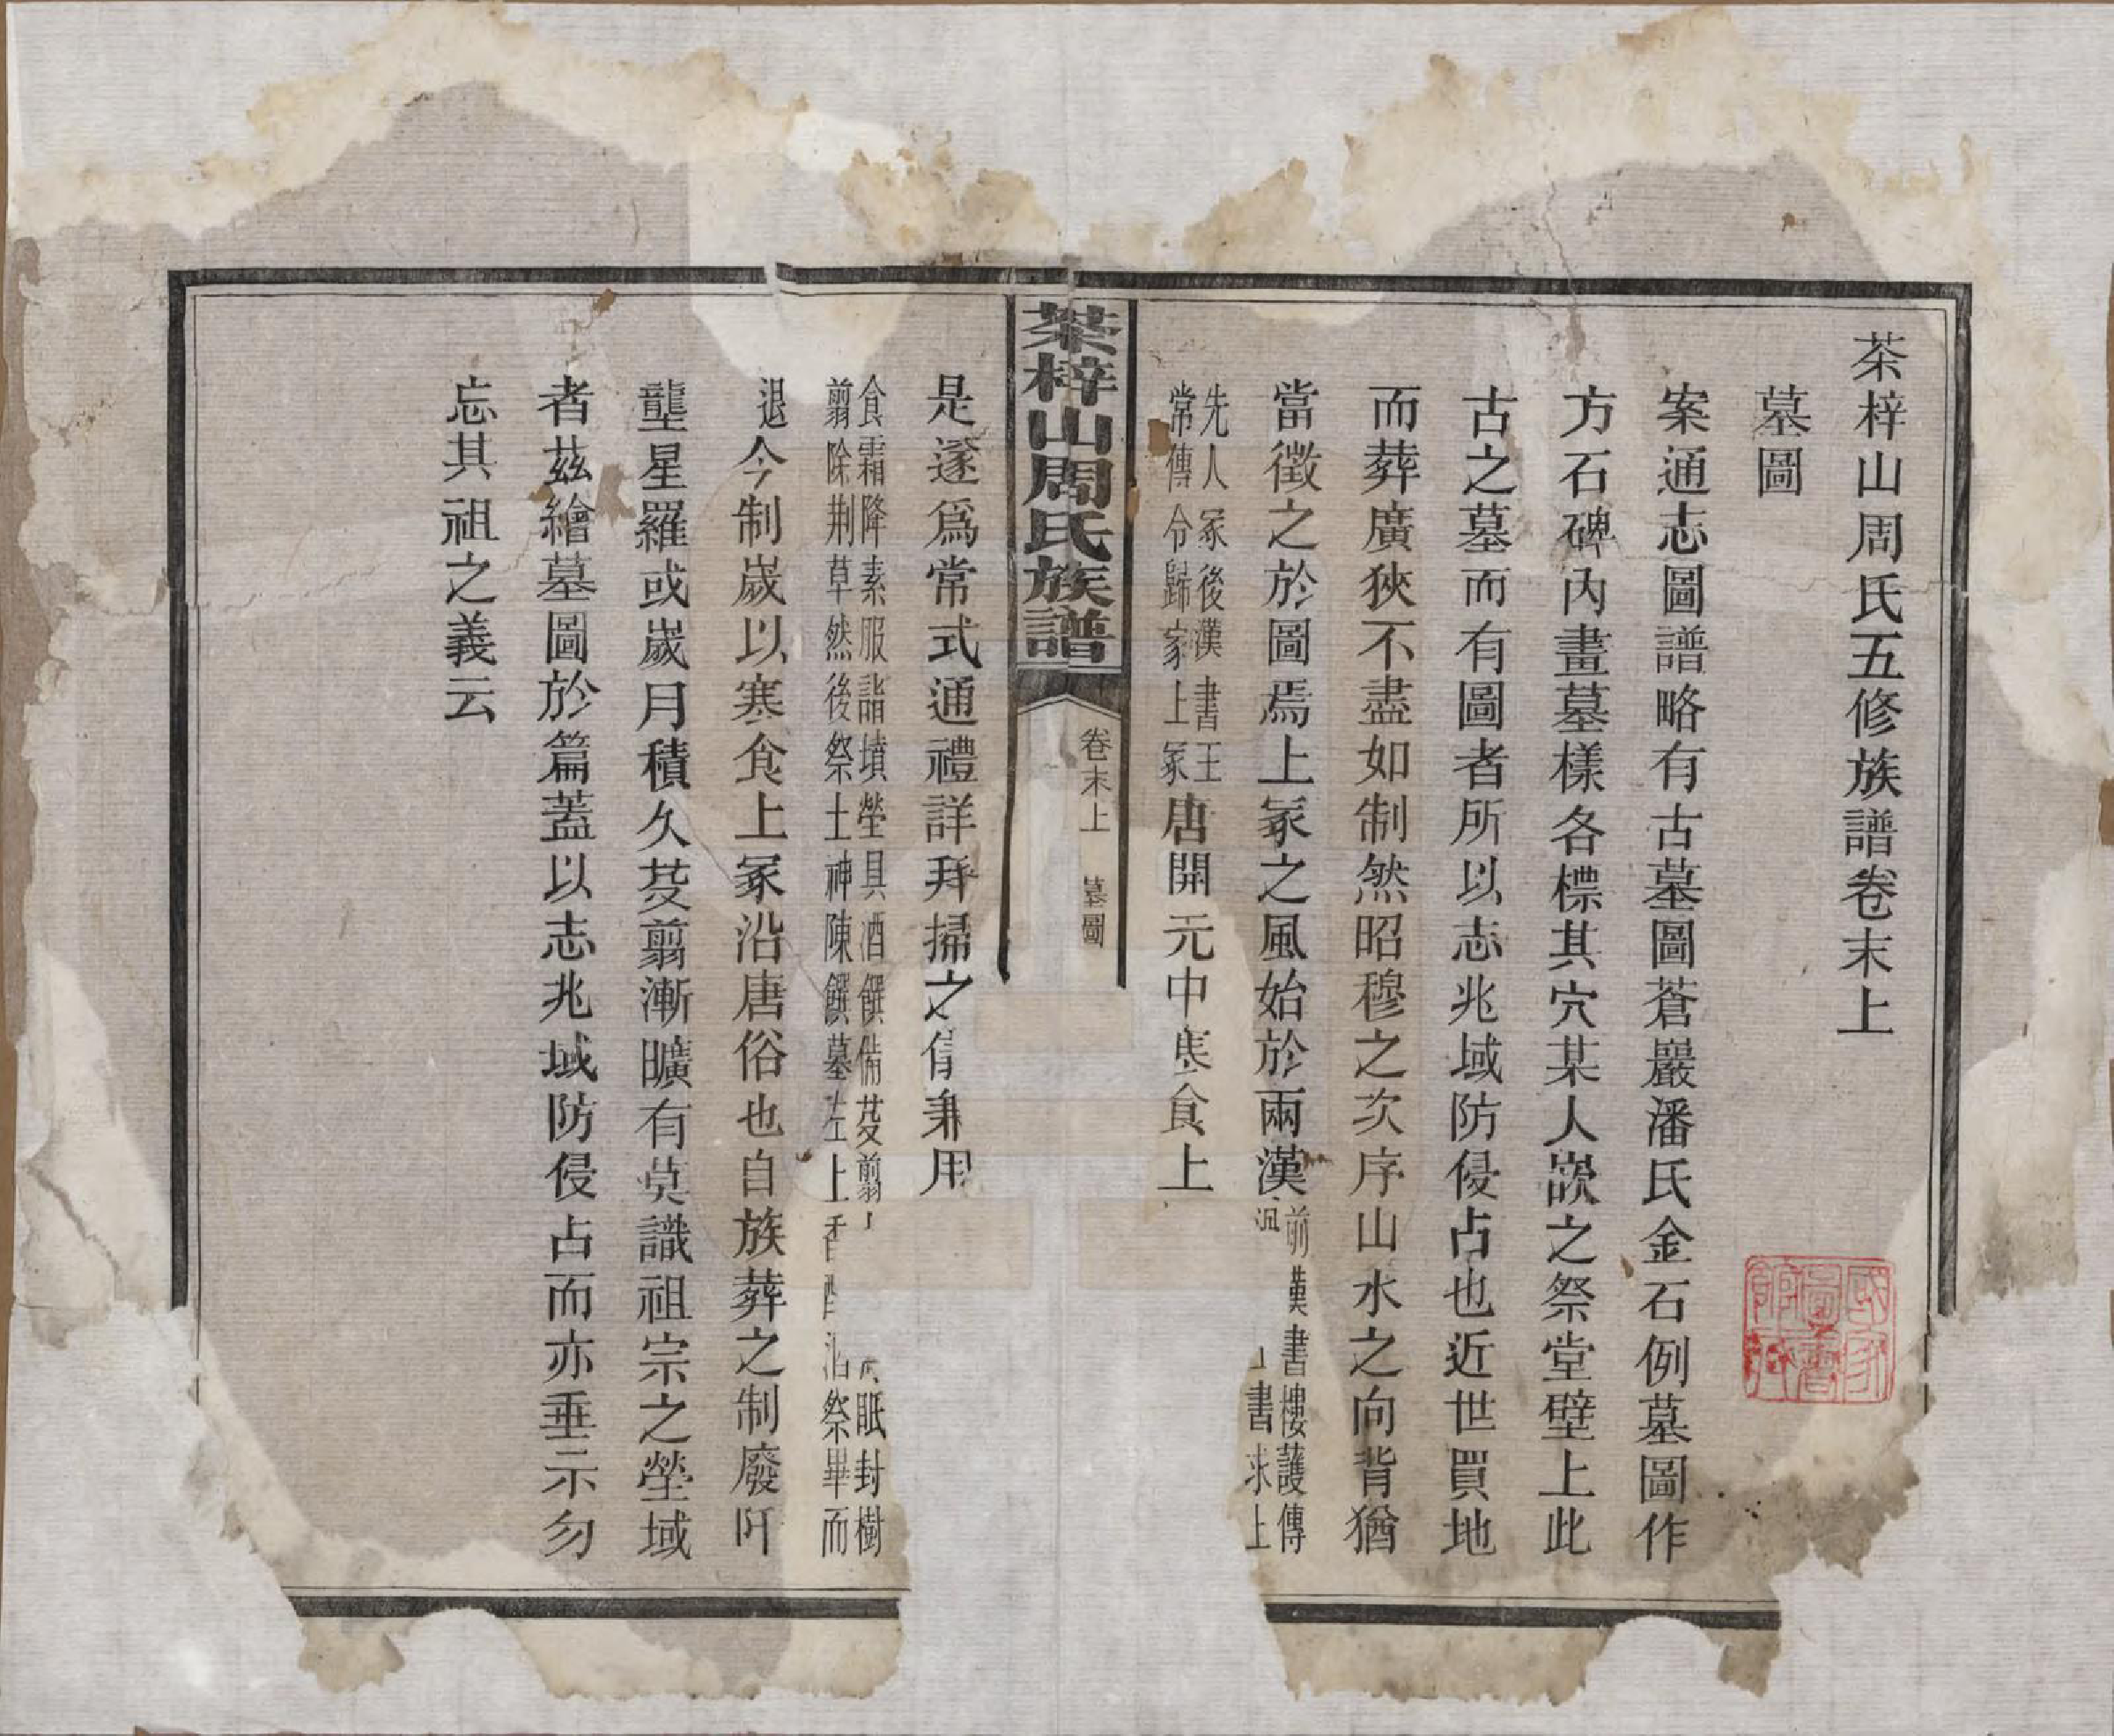 茶梓山周氏五修族譜卷末上
墓圖
案通志圖譜略有古墓圖蒼巖潘氏金石例墓圖作
方石碑內畫墓樣各標其穴某人嵗之祭堂壁上此
古之墓而有圖者所以志兆域防侵占也近世買地
而葬廣狹不盡如制然昭穆之次序山水之向背猶
當徵之於圖焉上冢之風始於兩漢
前漢書樓護傳
書求上
先人冢後漢書王
常傳令歸家上冢
唐開元中寒食上
茶梓山周氏族譜
卷末上 墓圖
是遂爲常式通禮詳拜掃之 兼用
食霜降素服詣墳塋具酒饌備芟翦
眂封樹
翦除荆草然後祭土神陳饌墓左上香酹酒祭畢而
退
今制嵗以寒食上冢沿唐俗也自族葬之制廢阡
壟星羅或嵗月積久芟翦漸曠有莫識祖宗之塋域
者茲繪墓圖於篇蓋以志兆域防侵占而亦垂示勿
忘其祖之義云
國家圖書館藏